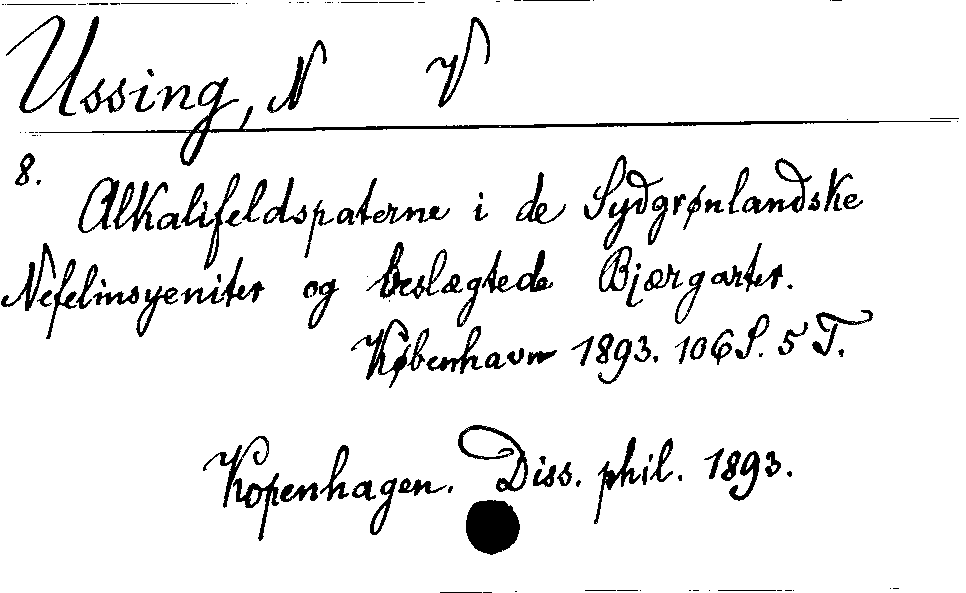 Ussing, N V
8.
Alkalifeldspaterne i de Sydgrønlandske
Nefelinsyeniter og beslægtede Bjærgarter.
København 1893. 106 S. 5 T.
Kopenhagen. Diss. phil. 1893.